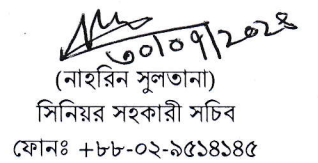 ৩০/০৭/২০২৪
(নাহরিন সুলতানা)
সিনিয়র সহকারী সচিব
ফোনঃ +৮৮-০২-৯৫১৪১৪৫